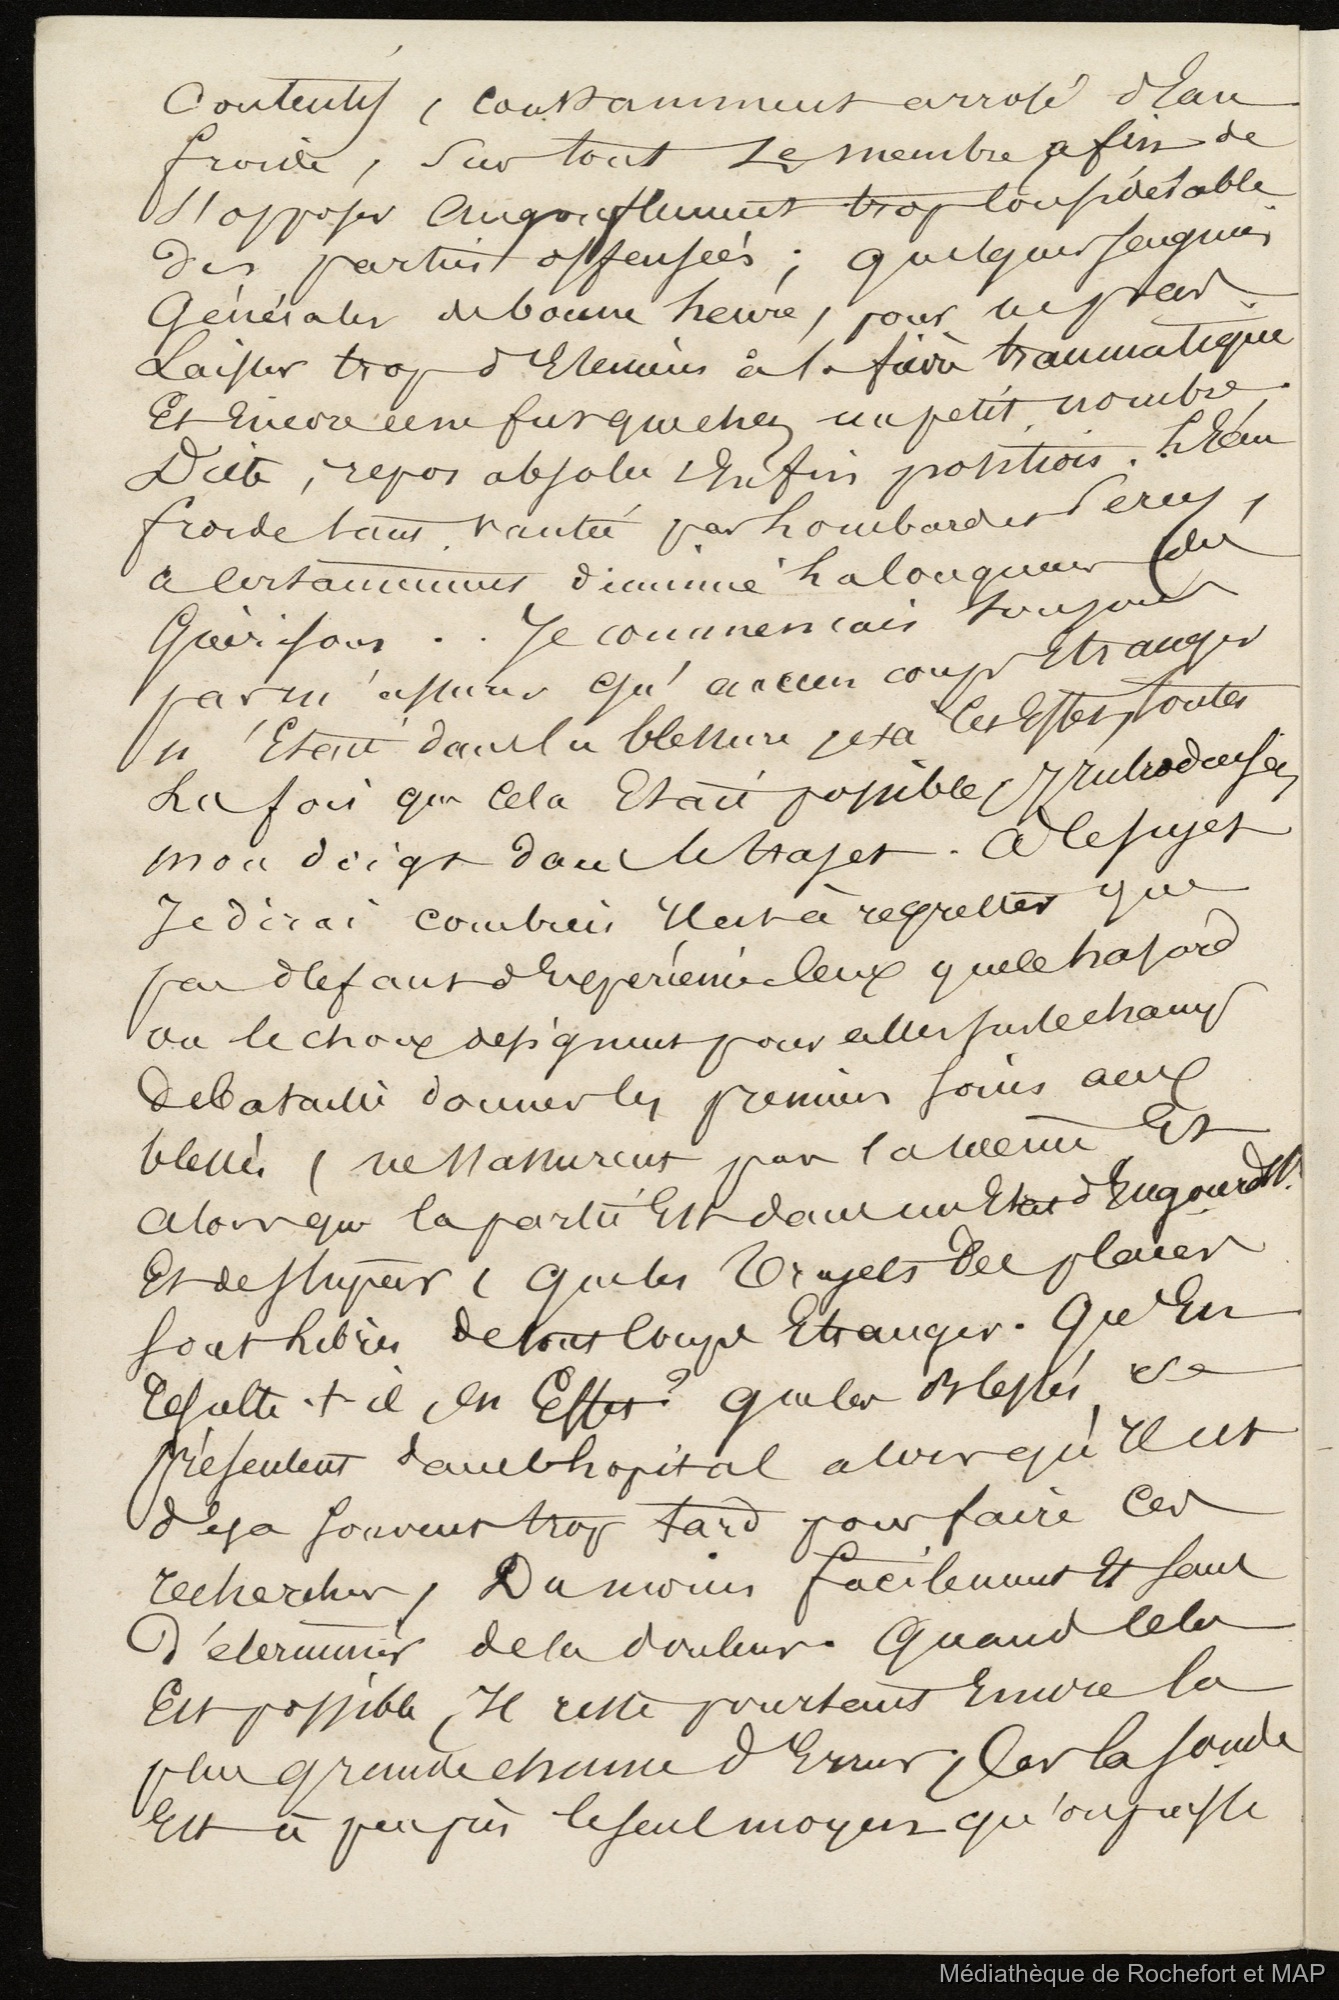 Contentif, constamment arrosé d'Eau
froide, sur tout le membre afin de
s'opposer au gonflement trop considérable
des parties offensées ; quelques saignées
Générales de bonne heure, pour ne pas
Laisser trop d'Elemens à la fièvre traumatique
Et Encore ce ne fut que chez un petit nombre.
Diète, repos absolu Enfin position. L'Eau
froide tant vantée par Lombard et Percy,
a certainement diminué la longueur des
Guérisons . . Je commencais toujours
par m'assurer qu'aucun corps Etranger
n'Etait dans la blessure et à cet Effet, toutes
Les fois que cela Etait possible, j'introduisais
mon doigt dans le trajet . A ce sujet
Je dirai combien Il est à regretter que
par défaut d'Expérience ceux que le hasard
ou le choix désignent pour aller sur le champ
de Bataille donner les premiers soins aux
blessés, ne s'assurent pas la même Et
alors que la partie Est dans un Etat d'Engourdt.
Et de stupeur, que les Trajets des plaies
sont libres de tout Corps Etranger. Qu'En
Résulte-t-il, En Effet ? que les Blessés se
présentent dans l'hopital alors qu'Il est
déja souvent trop tard pour faire ces
recherches, Du moins facilement Et sans
déterminer de la douleur. Quand cela
Est possible, Il reste pourtant Encore la
plus grande chance d'Erreur, Car la sonde
Est à peu près le seul moyen qu'on puisse
Médiathèque de Rochefort et MAP